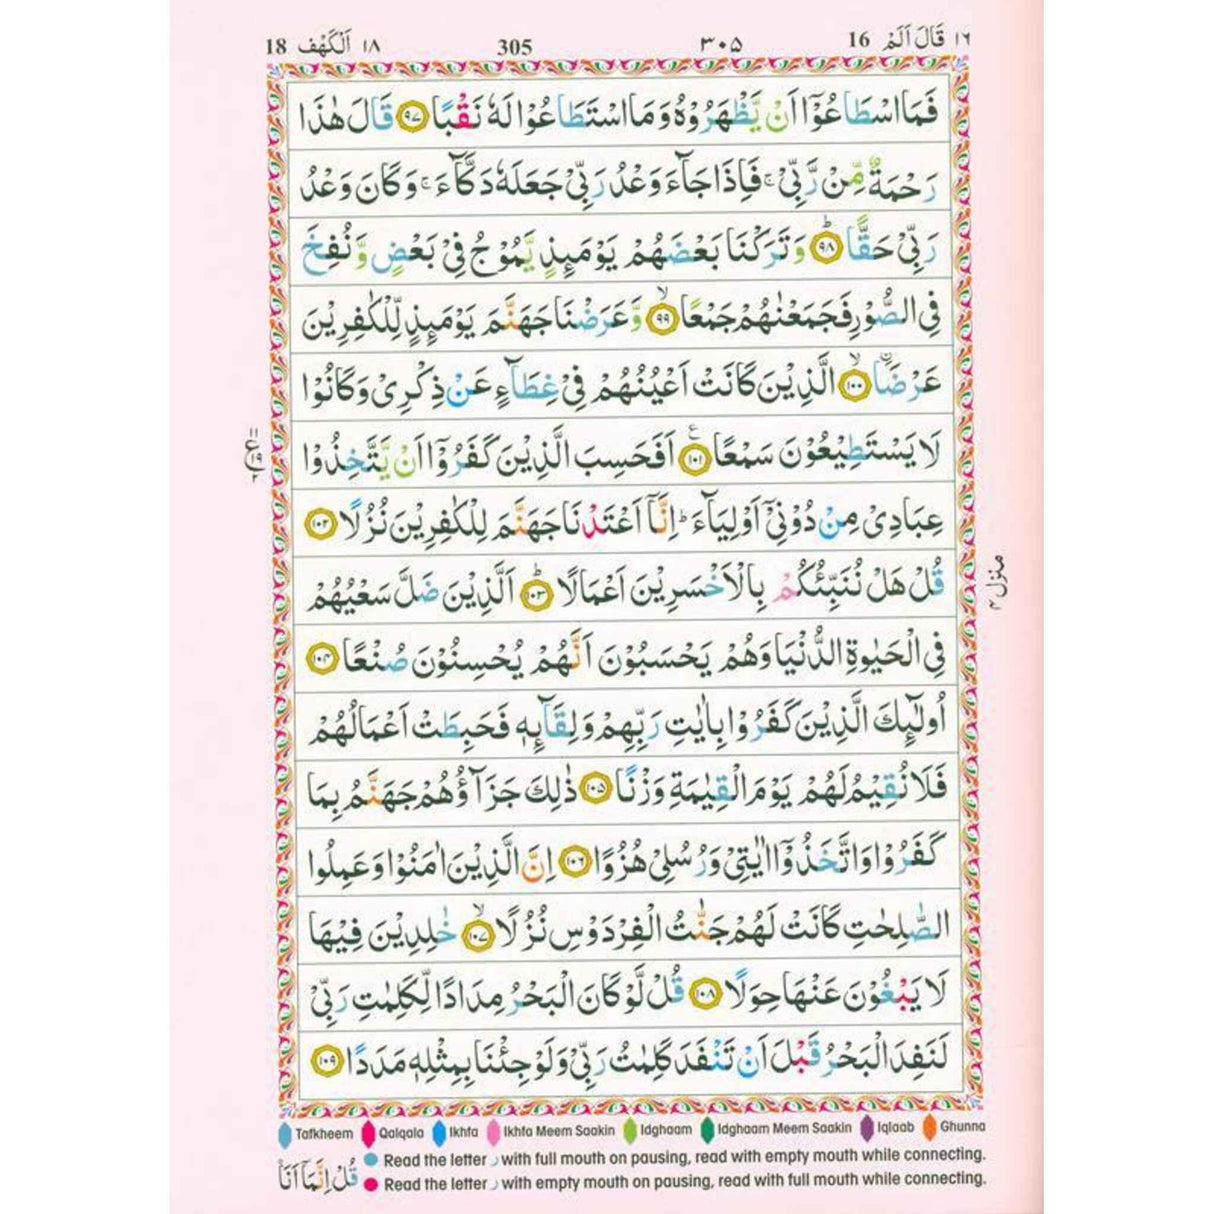 18 اَلْكَهْف ١٨ 305 ٣٠٥ 16 قَالَ اَلَمْ ١٦
فَمَا اسْطَاعُوْۤا اَنْ يَّظْهَرُوْهُ وَ مَا اسْتَطَاعُوْا لَهٗ نَقْبًا ۹۷ قَالَ هٰذَا
رَحْمَةٌ مِّنْ رَّبِّيْ ۚ فَاِذَا جَآءَ وَعْدُ رَبِّيْ جَعَلَهٗ دَكَّآءَ ۚ وَ كَانَ وَعْدُ
رَبِّيْ حَقًّا ؕ ۹۸ وَ تَرَكْنَا بَعْضَهُمْ يَوْمَئِذٍ يَّمُوْجُ فِيْ بَعْضٍ وَّ نُفِخَ
فِي الصُّوْرِ فَجَمَعْنٰهُمْ جَمْعًا ۙ ۹۹ وَّ عَرَضْنَا جَهَنَّمَ يَوْمَئِذٍ لِّلْكٰفِرِيْنَ
عَرْضَا ۙ ن ۱۰۰ الَّذِيْنَ كَانَتْ اَعْيُنُهُمْ فِيْ غِطَآءٍ عَنْ ذِكْرِيْ وَ كَانُوْا
لَا يَسْتَطِيْعُوْنَ سَمْعًا ع ۱۰۱ اَفَحَسِبَ الَّذِيْنَ كَفَرُوْۤا اَنْ يَّتَّخِذُوْا
۱۱
ع
۱۹
۲
عِبَادِيْ مِنْ دُوْنِيْۤ اَوْلِيَآءَ ؕ اِنَّاۤ اَعْتَدْنَا جَهَنَّمَ لِلْكٰفِرِيْنَ نُزُلًا ۱۰۲
قُلْ هَلْ نُنَبِّئُكُمْ بِالْاَخْسَرِيْنَ اَعْمَالًا ؕ ۱۰۳ اَلَّذِيْنَ ضَلَّ سَعْيُهُمْ
منزل ۴
فِي الْحَيٰوةِ الدُّنْيَا وَ هُمْ يَحْسَبُوْنَ اَنَّهُمْ يُحْسِنُوْنَ صُنْعًا ۱۰۴
اُولٰٓئِكَ الَّذِيْنَ كَفَرُوْا بِاٰيٰتِ رَبِّهِمْ وَ لِقَآئِهٖ فَحَبِطَتْ اَعْمَالُهُمْ
فَلَا نُقِيْمُ لَهُمْ يَوْمَ الْقِيٰمَةِ وَزْنًا ۱۰۵ ذٰلِكَ جَزَآؤُهُمْ جَهَنَّمُ بِمَا
كَفَرُوْا وَ اتَّخَذُوْۤا اٰيٰتِيْ وَ رُسُلِيْ هُزُوًا ۱۰۶ اِنَّ الَّذِيْنَ اٰمَنُوْا وَ عَمِلُوا
الصّٰلِحٰتِ كَانَتْ لَهُمْ جَنّٰتُ الْفِرْدَوْسِ نُزُلًا ۙ ۱۰۷ خٰلِدِيْنَ فِيْهَا
لَا يَبْغُوْنَ عَنْهَا حِوَلًا ۱۰۸ قُلْ لَّوْ كَانَ الْبَحْرُ مِدَادًا لِّكَلِمٰتِ رَبِّيْ
لَنَفِدَ الْبَحْرُ قَبْلَ اَنْ تَنْفَدَ كَلِمٰتُ رَبِّيْ وَ لَوْ جِئْنَا بِمِثْلِهٖ مَدَدًا ۱۰۹
Tafkheem Qalqala Ikhfa Ikhfa Meem Saakin Idghaam Idghaam Meem Saakin Iqlaab Ghunna
Read the letter ر with full mouth on pausing, read with empty mouth while connecting.
قُلْ اِنَّمَاۤ اَنَا
Read the letter ر with empty mouth on pausing, read with full mouth while connecting.